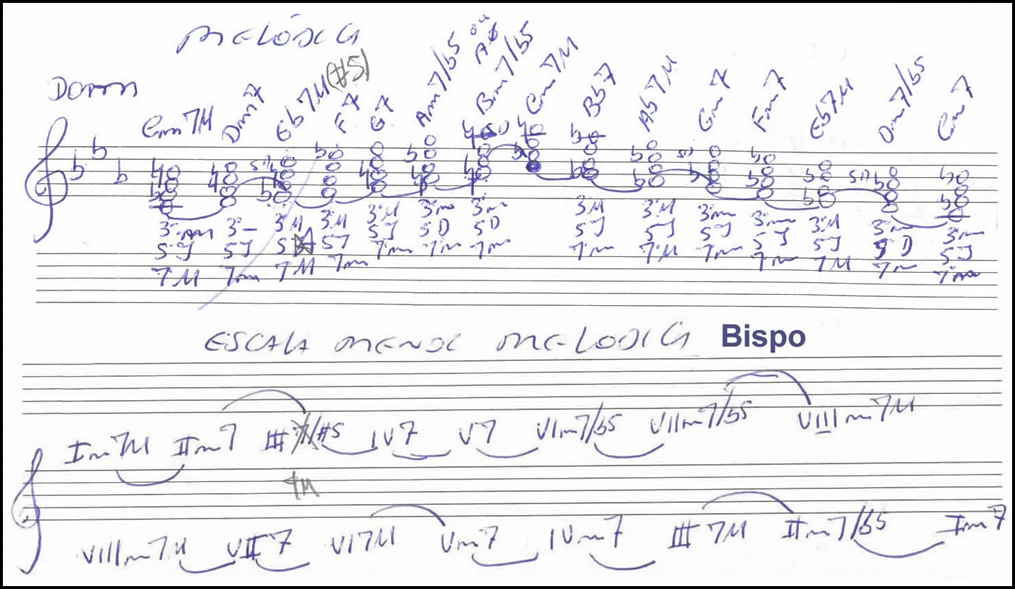 MELÓDICA
DOmm
Cm7M Dm7 Eb7M(#5) F7 G7 Am7/b5 ou AØ Bm7/b5 Cm7M Bb7 Ab7M Gm7 Fm7 Eb7M Dm7/b5 Cm7
3ªm 3ª- 3ªM 3ªM 3ªM 3ªm 3ªm 3ªM 3ªM 3ªm 3ªm 3ªM 3ªm 3ªm
5J 5J 5A 5J 5J 5D 5D 5J 5J 5J 5J 5J 5D 5J
7M 7m 7M 7m 7m 7m 7m 7m 7M 7m 7m 7M 7m 7m
ESCALA MENOR MELODICA Bispo
Im7M IIm7 III7/#5 IV7 V7 VIm7/b5 VIIm7/b5 VIIIm7M
7M
VIIIm7M VII7 VI7M Vm7 IVm7 III7M IIm7/b5 Im7